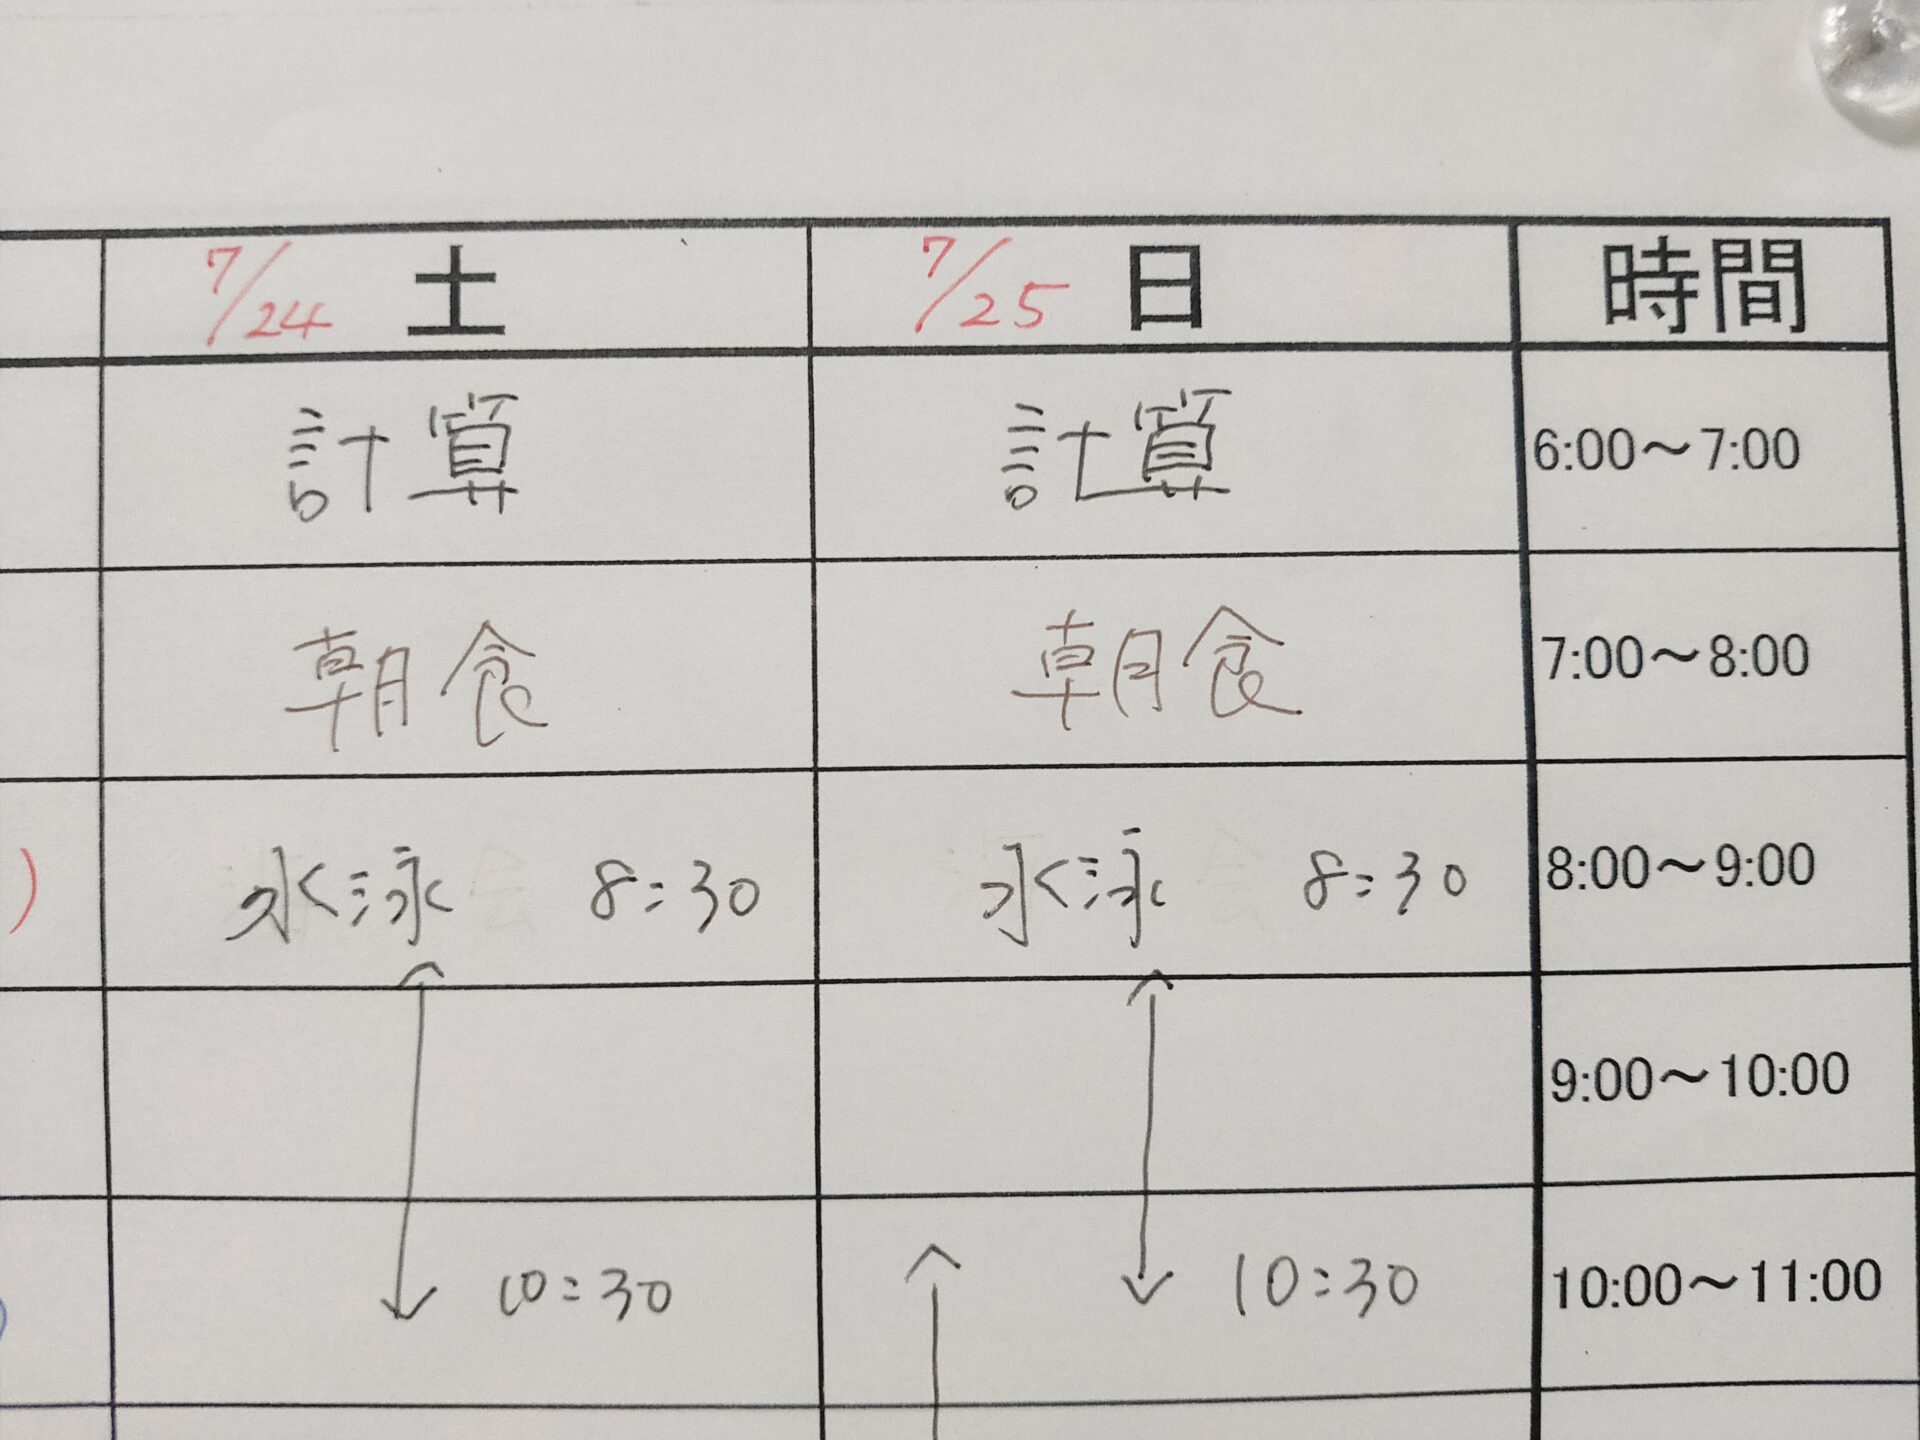 7/24 土 7/25 日 時間
計算 計算 6:00～7:00
朝食 朝食 7:00～8:00
) 水泳 8:30 水泳 8:30 8:00～9:00
9:00～10:00
10:30 10:30 10:00～11:00